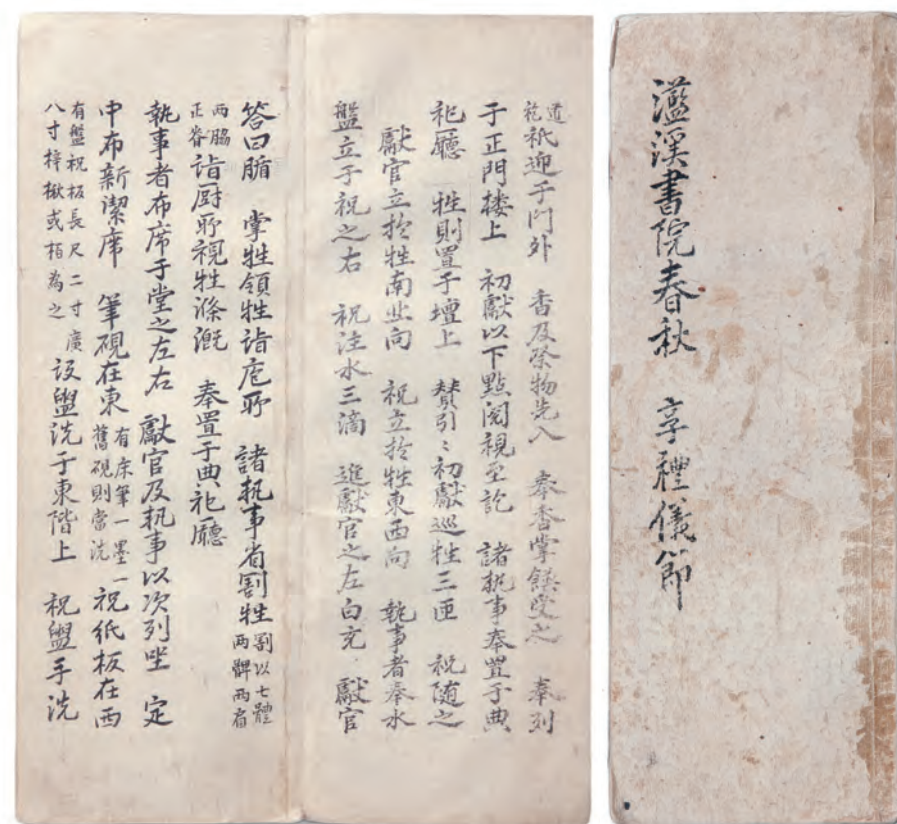 灆溪書院春秋 享禮儀節
道袍祗迎于門外 香及祭物先入 奉香掌饌受之 奉列
于正門樓上 初獻以下點閱視至訖 諸執事奉置于典
祀廳 牲則置于壇上 賛引〻初獻巡牲三匝 祝随之
獻官立於牲南北向 祝立於牲東西向 執事者奉水
盤立于祝之右 祝注水三滴 進獻官之左白充 獻官
答曰腯 掌牲領牲詣庖所 諸執事省割牲 割以七體兩髀兩肩
兩脇正脊 詣厨所視牲滌漑 奉置于典祀廳
執事者布席于堂之左右 獻官及執事以次列坐 定
中布新潔席 筆硯在東 有床筆一墨一舊硯則當洗 祝紙板在西
有盤祝板長尺二寸廣八寸梓楸或栢為之 設盥洗于東階上 祝盥手洗